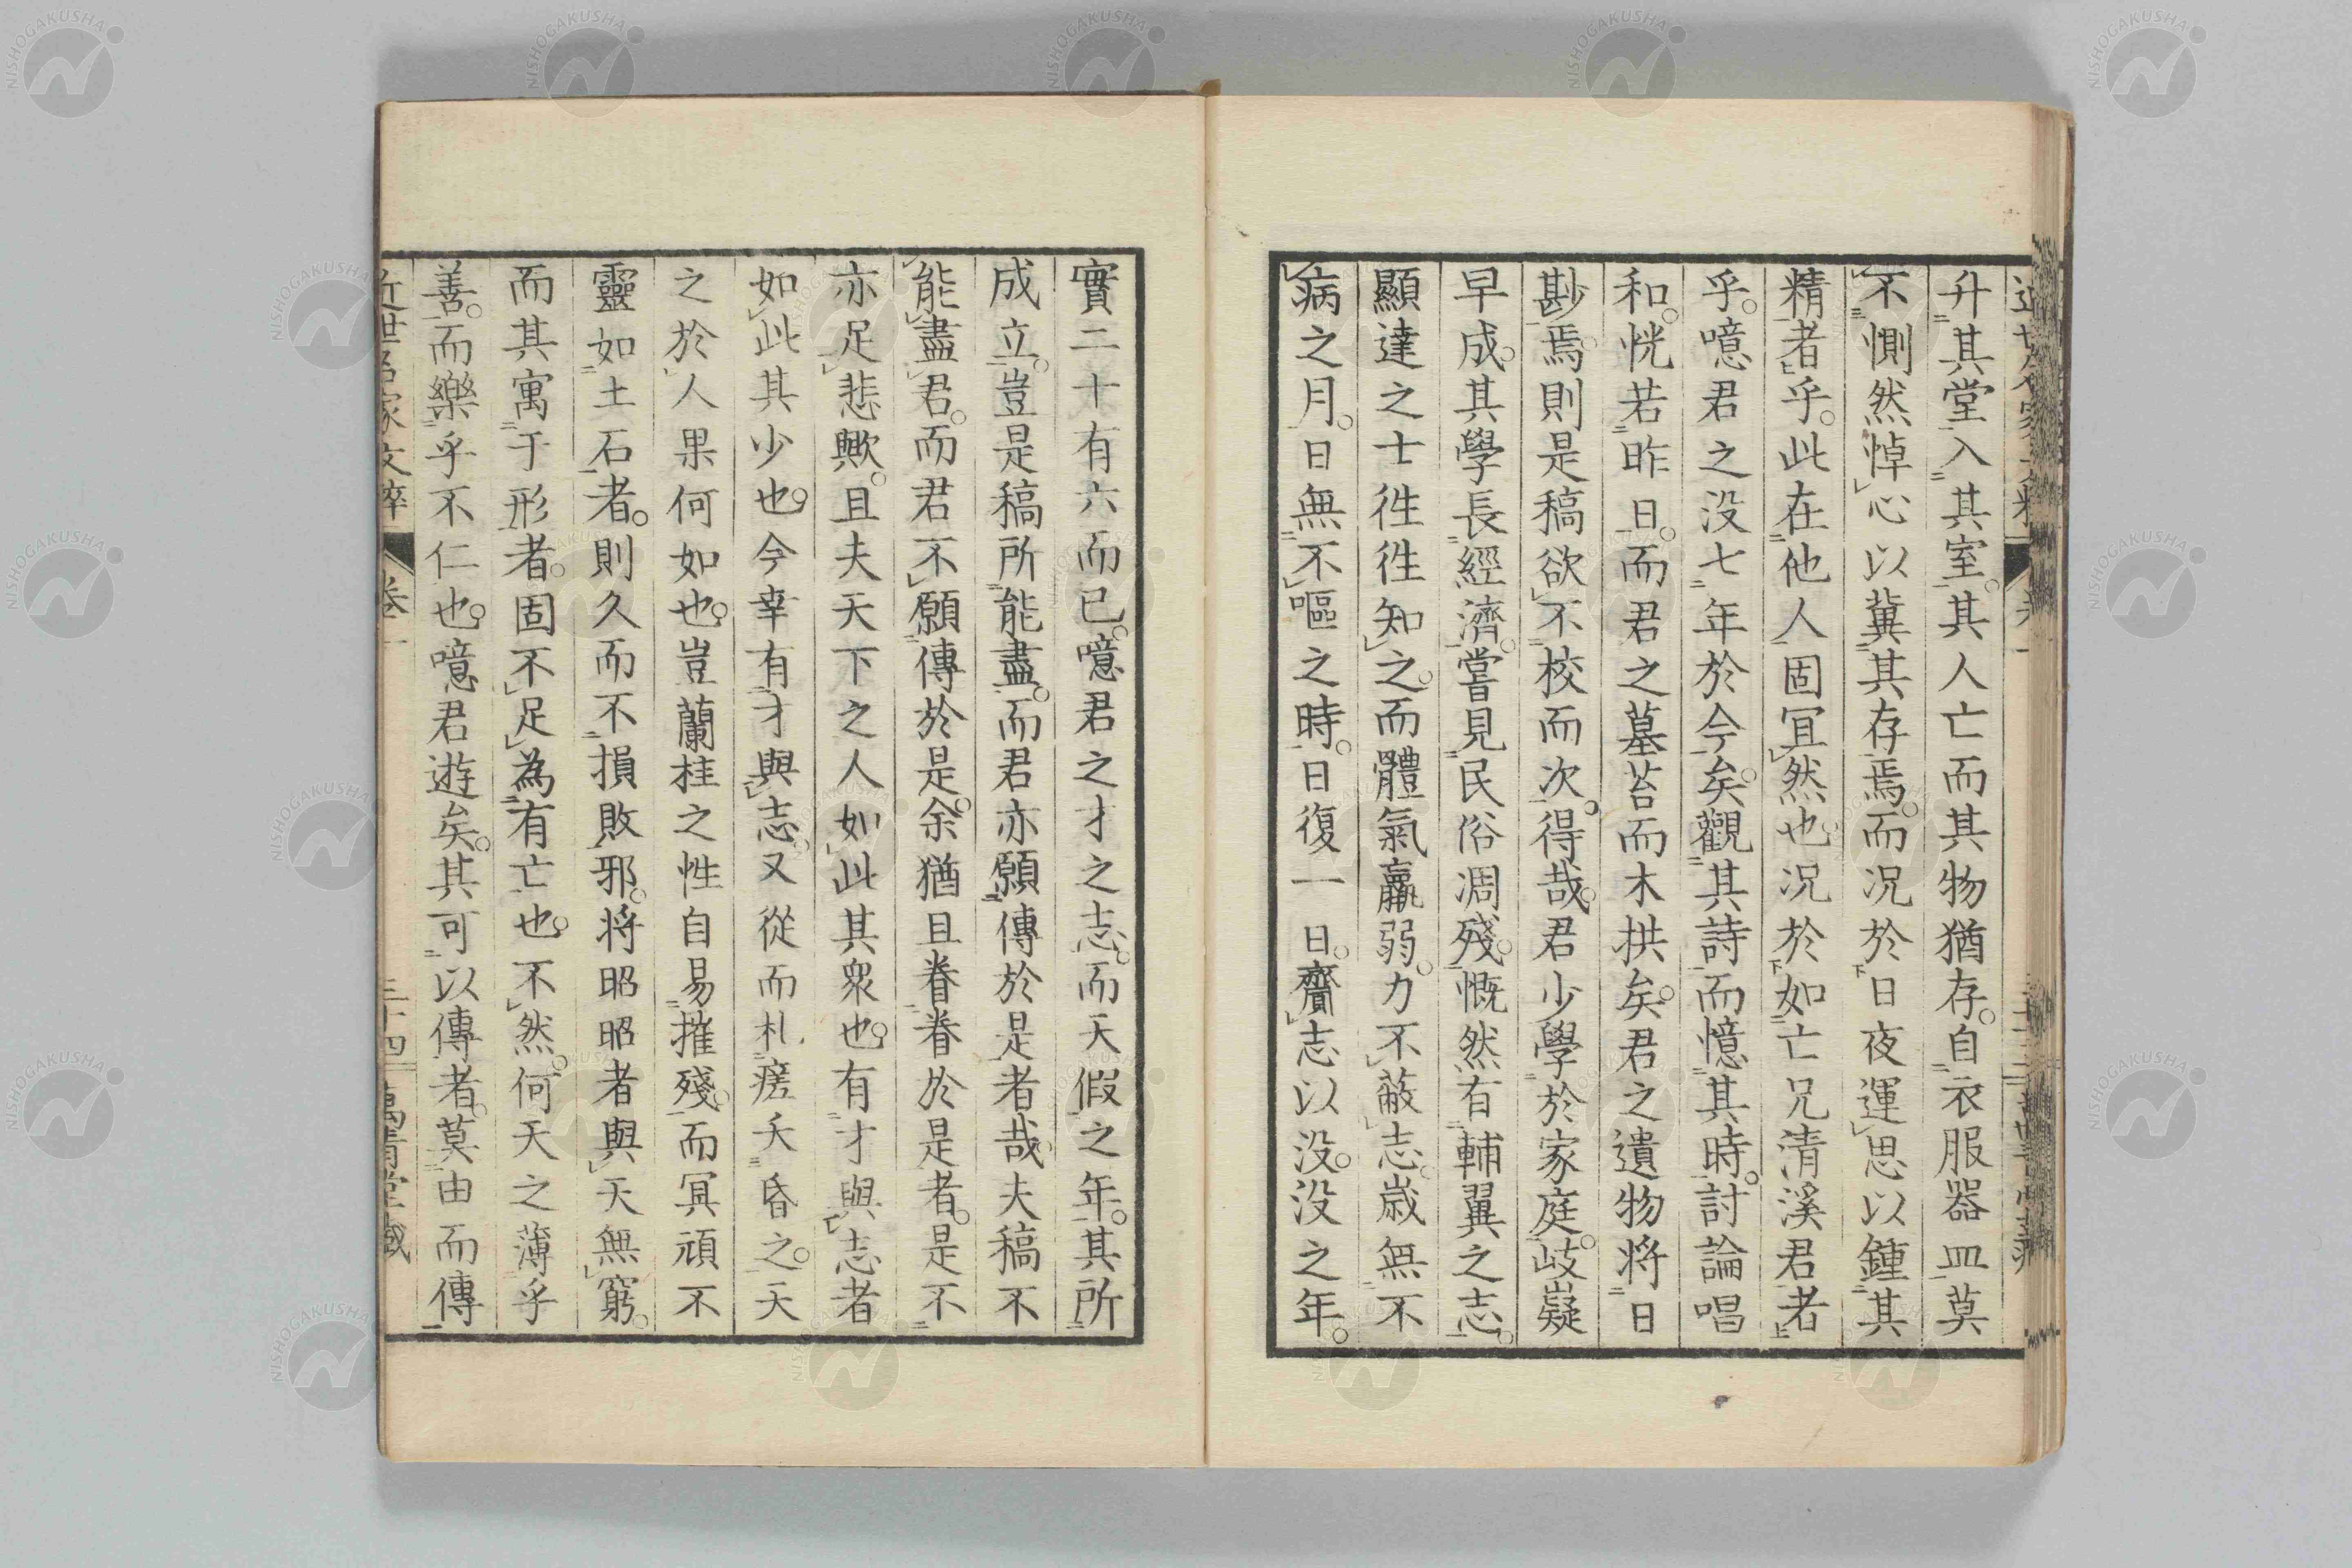 升其堂入其室。其人亡而其物猶存。自衣服器皿莫
不惻然悼心以冀其存焉。而況於日夜運思以鍾其
精者乎。此在他人固宜然也況於如亡兄清溪君者
乎。噫君之没七年於今矣。觀其詩而憶其時。討論唱
和。恍若昨日。而君之墓苔而木拱矣。君之遺物将日
尠焉。則是稿欲不校而次得哉。君少學於家庭。岐嶷
早成。其學長經濟。嘗見民俗凋殘。慨然有輔翼之志。
顯達之士往往知之。而體氣羸弱。力不蔽志。歳無不
病之月。日無不嘔之時。日復一日。齎志以没。没之年。
實二十有六而已。噫君之才之志。而天假之年。其所
成立。豈是稿所能盡。而君亦願傳於是者哉。夫稿不
能盡君。而君不願傳於是。余猶且眷眷於是者。是不
亦足悲歟。且夫天下之人如此其衆也。有才與志者
如此其少也。今幸有才與志。又從而札瘥夭昏之。天
之於人果何如也。豈蘭桂之性自易摧殘。而冥頑不
靈如土石者。則久而不損敗邪。将昭昭者與天無窮。
而其寓于形者。固不足為有亡也。不然。何天之薄乎
善。而樂乎不仁也。噫君遊矣。其可以傳者。莫由而傳
近世名家文粹 卷一 三十四 萬青堂藏
NISHOGAKUSHA